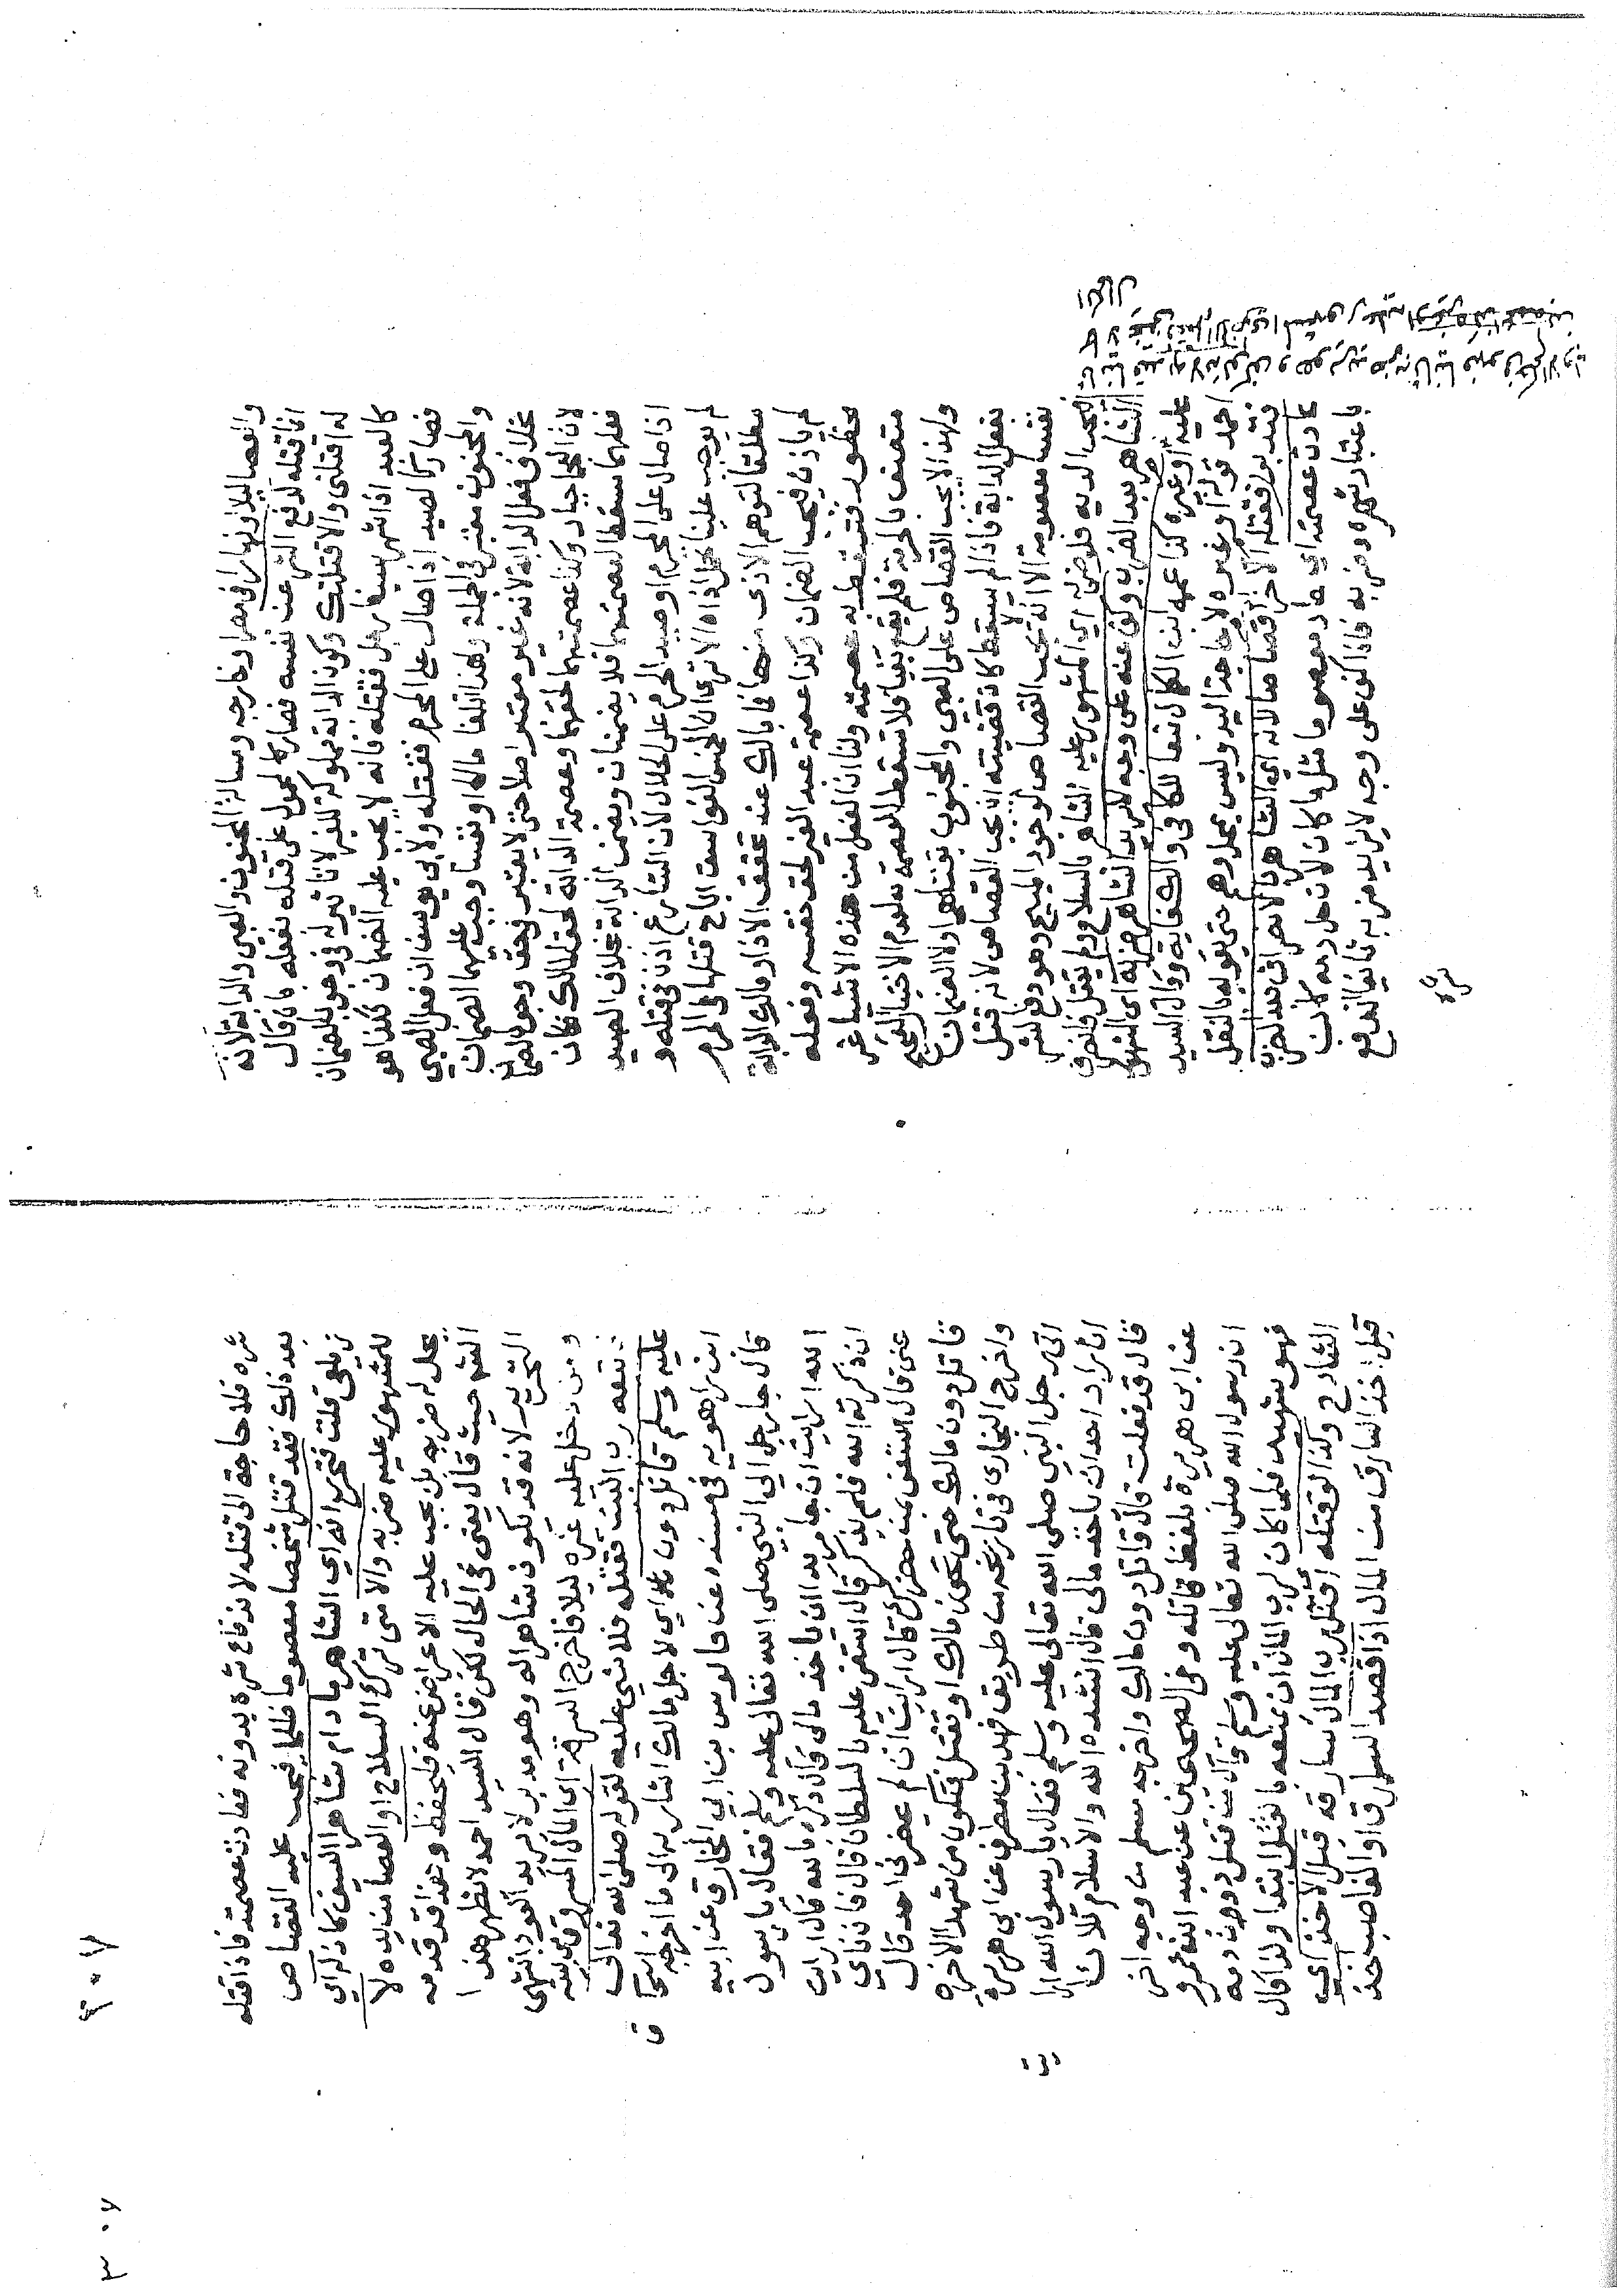 والعصا ليلا ونهارا في مصر او خارجه وسالة المجنون والصبي والدابة لانه
انما قتله لدفع الشر عن نفسه فصار كالمحمول على قتله بفعله كما قال
له اقتلني والا قتلتك وكون الدابة مملوكة للغير لا تاثير له في وجوب الضمان
كالعبد اذا شهر سيفا على رجل فقتله فانه لا يجب عليه الضمان فكذا هو
فصار كالصيد اذا صال على المحرم فقتله ولابي يوسف ان فعل الصبي
والمجنون معتبر في الجملة ولهذا لو اتلفا مالا او نفسا وجب عليهما الضمان
بخلاف فعل الدابة لانه غير معتبر اصلا حتى لا يعتبر في حق وجوب الضما
لان العجما جبار وكذا عصمتهما لحقهما وعصمة الدابة لحق المالك فكان
فعلهما مسقطا لعصمتهما فلا يضمنان ويضمن الدابة بخلاف الصيد
اذا صال على المحرم او صيد الحرم على الحلال لان الشارع اذن في قتله و
لم يوجب علينا تحمل اذاه الا ترى ان الخمس الفواسق اباح قتلها في الحرم
مطلقا لتوهم الاذى منها فما بالك عند تحقق الاذى ومالك الدابة
لم ياذن فيجب الضمان وكذا عصمة عبد الغير لحق نفسه وفعله
محظور فتسقط به عصمته ولنا ان الفعل من هذه الاشيا غير
متصف بالحرمة فلم يقع بغيا فلا تسقط العصمة لعدم الاختيار الصحيح
ولهذا لا يجب القصاص على الصبي والمجنون بقتلهما ولا الضمان
بفعل الدابة فاذا لم يسقط كان قضيته ان يجب القصاص لانه قتل
نفسا معصومة الا انه لا يجب القصاص لوجود المبيح وهو دفع الشر
فتجب الدية ولو ضربه اي المشهور عليه الشاهر بالسلاح ولم يقتل وانصرف
الشاهر بعد الضرب وكف عنه على وجه لا يريد الشاهر ضربه اي المشهور
عليه او غيره كذا عممه ابن الكمال تبعا للكافي والكفاية وقال السيد
احمد قوله او غيره لا حاجة اليه وليس بمحل وهم حتى يقويه بالنقل
فتدبر فقتله الاخر قصاصا لانه اي الشاهر بالانصراف بعد الضرب
عادت عصمته اي عاد معصوما مثل ما كان لان حل دمه كان
باعتبار شهره وضربه فاذا كف على وجه لا يريد ضربه ثانيا اندفع
شره
شره فلا حاجة الى قتله لاندفاع شره بدونه فعادت عصمته فاذا قتله
بعد ذلك فقد قتل شخصا معصوما ظلما فيجب عليه القصاص
زيلعي قلت فتحرر انه اي الشاهر ما دام شاهرا السيف كما ذكر اي
للمشهور عليه ضربه والا متى ترك السلاح او العصا من يده لا
يحل له ضربه بل يجب عليه الاعراض عنه فليحفظ وهذا قد قدمه
المص حيث قال يعني في الحال لكن قال السيد احمد لا نظهر هذا
التحرير لانه قد يكون شاهرا له وهو مدبر لا يريد العود انتهى
ومن دخل عليه غيره ليلا فاخرج السرقة اي المال المسروق من بيته
فتبعه رب البيت فقتله فلا شي عليه لقوله صلى الله تعالى
عليه وسلم قاتل دون مالك اي لاجل مالك اشار به الى ما اخرجه اسحا
ق
ابن راهويه في مسنده عن قابوس بن ابي المخارق عن ابيه
قال جا رجل الى النبي صلى الله تعالى عليه وسلم فقال يا رسول
الله ارايت ان جا رجل يريد ان ياخذ مالي قال ذكره بالله قال ارايت
ان ذكرته الله فلم يذكر قال استعن عليه بالسلطان قال فان ناي
عني قال استعن بمن حضرك قال ارايت ان لم يحضرني احد قال
قاتل دون مالك حتى تحوز مالك او تقتل فتكون من شهدا الاخره
واخرج البخاري في تاريخه من طريق فهد بن مطرف عن ابي هريرة
اتى رجل النبي صلى الله تعالى عليه وسلم فقال يا رسول الله ارا
يت
ان اراد احد ان ياخذ مالي قال انشده الله والاسلام ثلاثا
قال قد فعلت قال قاتل دون مالك واخرجه مسلم من وجه اخر
عن ابي هريرة بلفظ قاتله وفي الصحيحين عن عبد الله بن عمرو
ان رسول الله صلى الله تعالى عليه وسلم قال من قتل دون دمه
فهو شهيد فلما كان لرب المال ان يمنعه بالقتل ابتدا ولذا قال
الشارح وكذا لو قتله اي قتل رب المال سارقه قبل الاخذ اي
قبل اخذ السارق من المال اذا قصد السارق او الغاصب اخذ
٣٠٧
٣٠٧